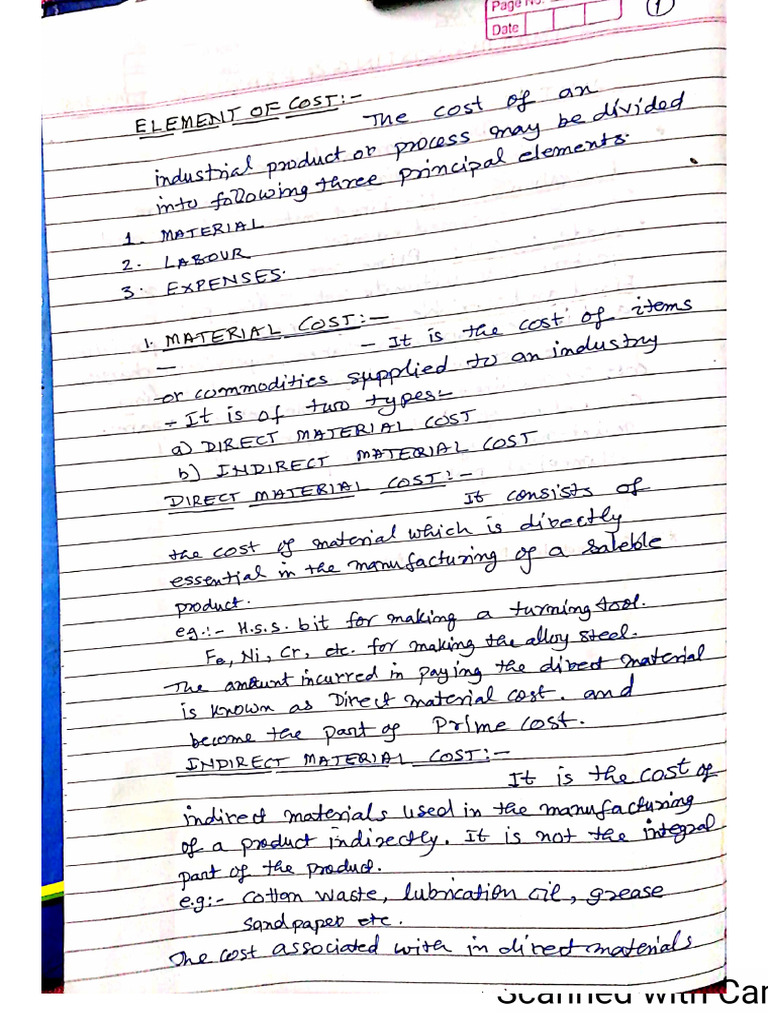 Page No.
Date
1
ELEMENT OF COST:-
The cost of an
industrial product or process may be divided
into following three principal elements.
1. MATERIAL
2. LABOUR
3. EXPENSES.
1. MATERIAL COST:-
- It is the cost of items
or commodities supplied to an industry
- It is of two types:-
a) DIRECT MATERIAL COST
b) INDIRECT MATERIAL COST
DIRECT MATERIAL COST:-
It consists of
the cost of material which is directly
essential in the manufacturing of a saleble
product.
eg.:- H.S.S. bit for making a turning tool.
Fe, Ni, Cr, etc. for making the alloy steel.
The amount incurred in paying the direct material
is known as Direct material cost. and
become the part of Prime cost.
INDIRECT MATERIAL COST:-
It is the cost of
indirect materials used in the manufacturing
of a product indirectly. It is not the integral
part of the product.
e.g:- cotton waste, lubrication oil, grease
sandpaper etc.
The cost associated with in direct materials
Scanned with Car